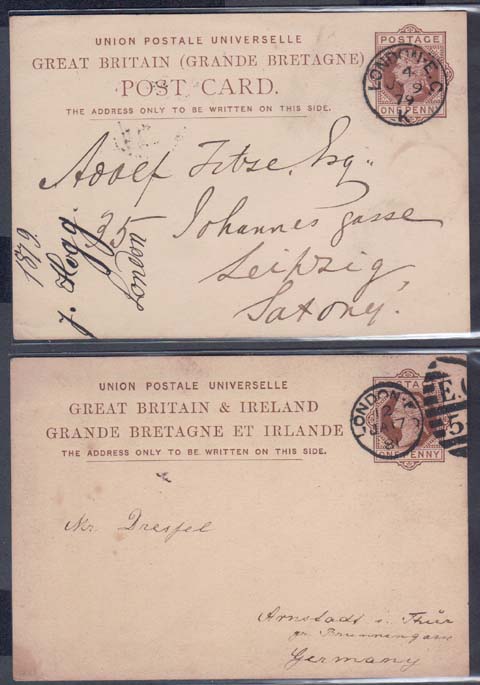 UNION POSTALE UNIVERSELLE
GREAT BRITAIN (GRANDE BRETAGNE)
POST CARD.
THE ADDRESS ONLY TO BE WRITTEN ON THIS SIDE.
POSTAGE
ONE PENNY
LONDON E.C
4
9
79
K
Adolf Titze, Esq.
35 Johannes gasse
Leipzig,
Saxony.
1879.
J. Hogg.
London
UNION POSTALE UNIVERSELLE
GREAT BRITAIN & IRELAND
GRANDE BRETAGNE ET IRLANDE
THE ADDRESS ONLY TO BE WRITTEN ON THIS SIDE.
POSTAGE
ONE PENNY
LONDON
2
JA 17
81
E.C
5
Mr. Dressel
Arnstadt i. Thür
Brunnengasse
Germany